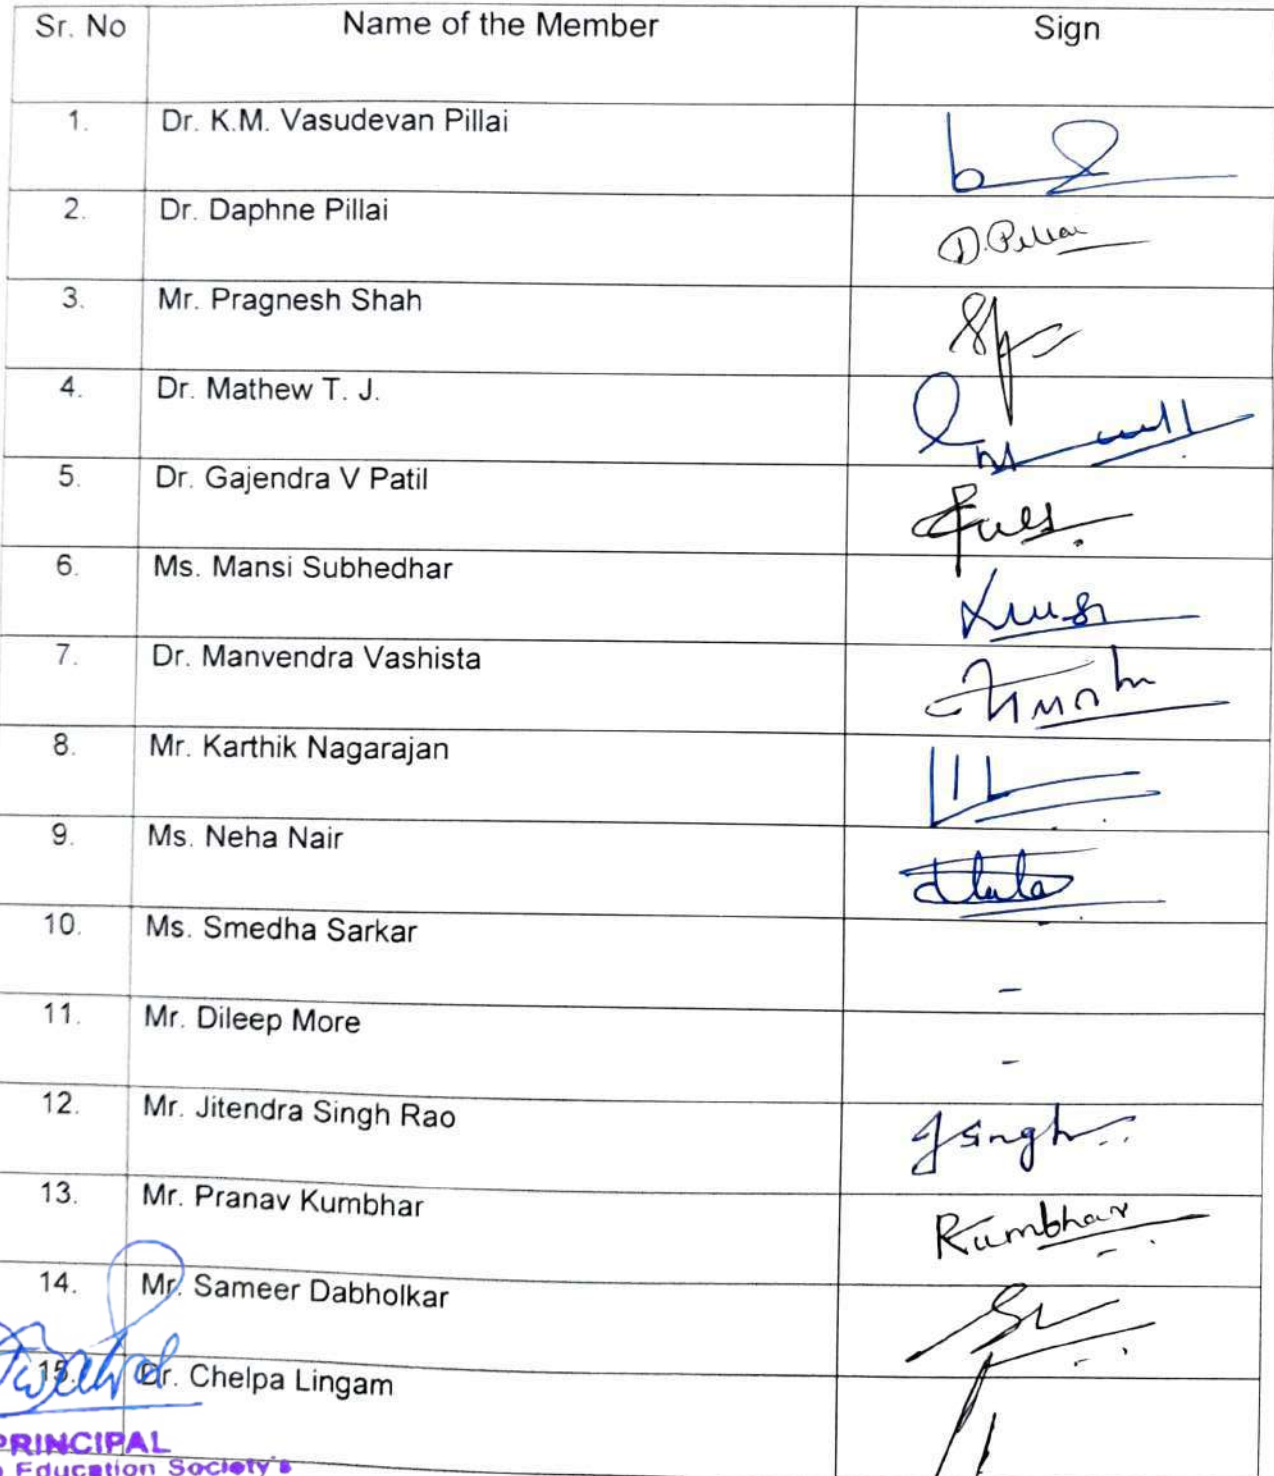 Sr. No Name of the Member Sign
1. Dr. K.M. Vasudevan Pillai
2. Dr. Daphne Pillai D. Pillai
3. Mr. Pragnesh Shah
4. Dr. Mathew T. J.
5. Dr. Gajendra V Patil
6. Ms. Mansi Subhedhar
7. Dr. Manvendra Vashista
8. Mr. Karthik Nagarajan
9. Ms. Neha Nair
10. Ms. Smedha Sarkar -
11. Mr. Dileep More -
12. Mr. Jitendra Singh Rao Jsingh
13. Mr. Pranav Kumbhar Kumbhar
14. Mr. Sameer Dabholkar
15. Dr. Chelpa Lingam
PRINCIPAL
Education Society's